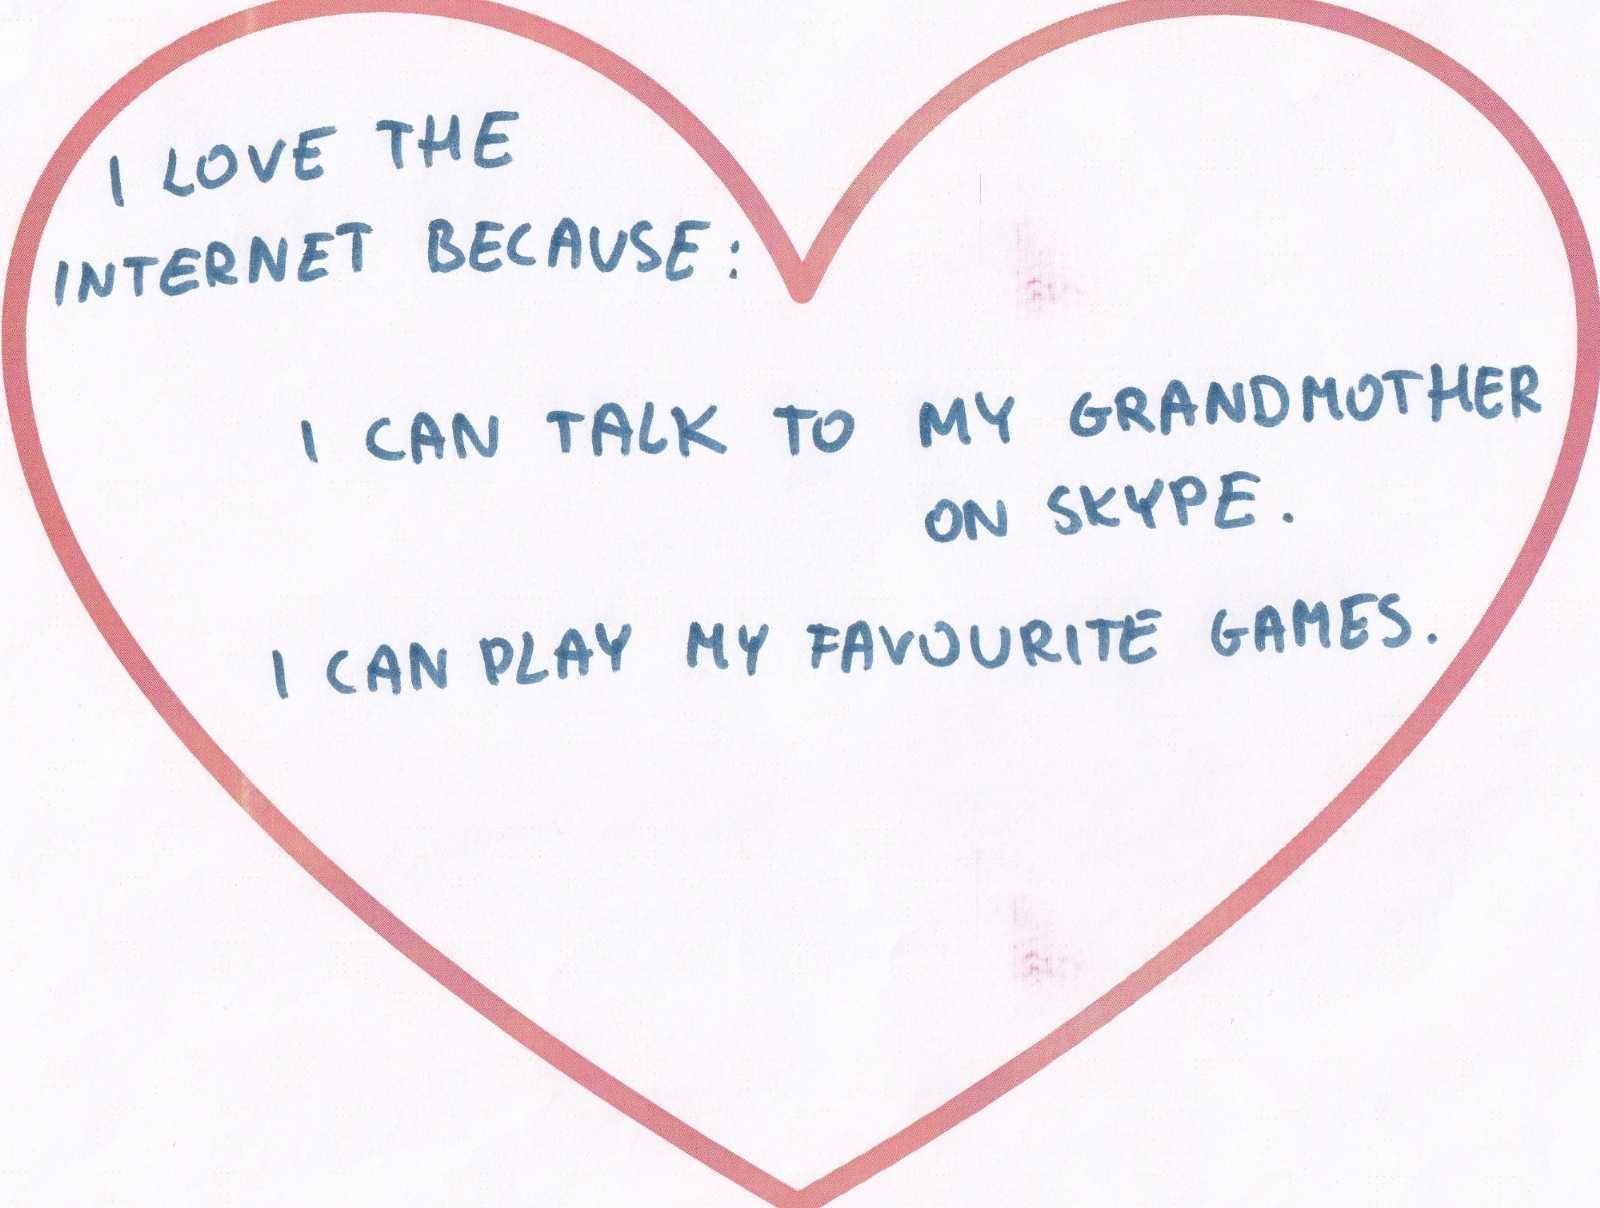 I LOVE THE
INTERNET BECAUSE:
I CAN TALK TO MY GRANDMOTHER
ON SKYPE.
I CAN PLAY MY FAVOURITE GAMES.